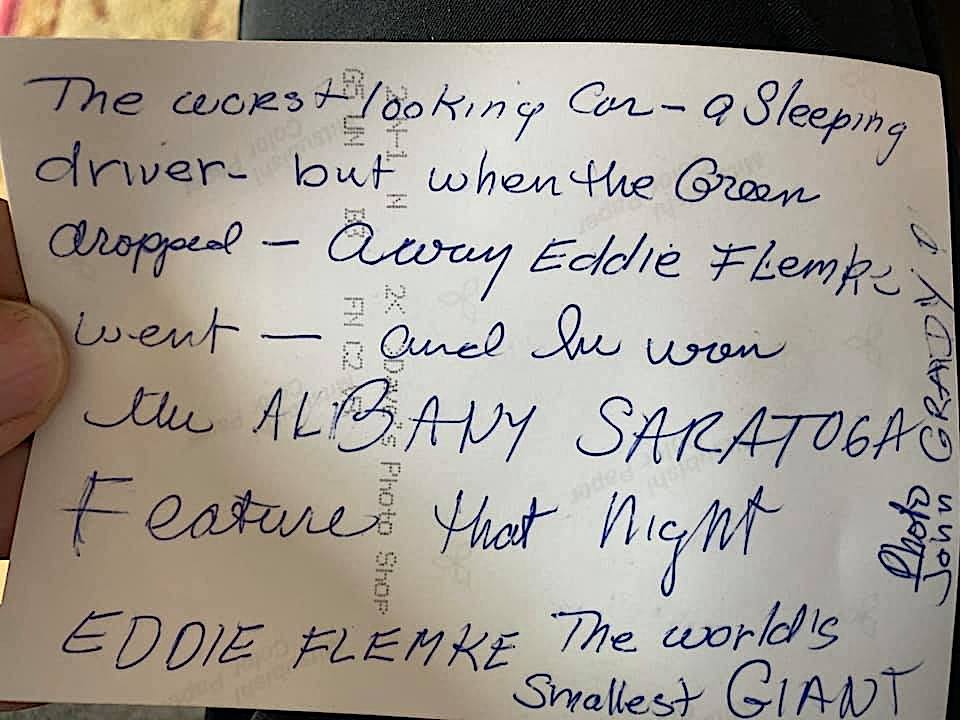 The worst looking Car - a Sleeping
driver - but when the Green
dropped - Away Eddie FLemke
went - and he won
the ALBANY SARATOGA
Feature that Night
EDDIE FLEMKE The world's
Smallest GIANT
Photo
John GRADY
Dave's Photo Shop